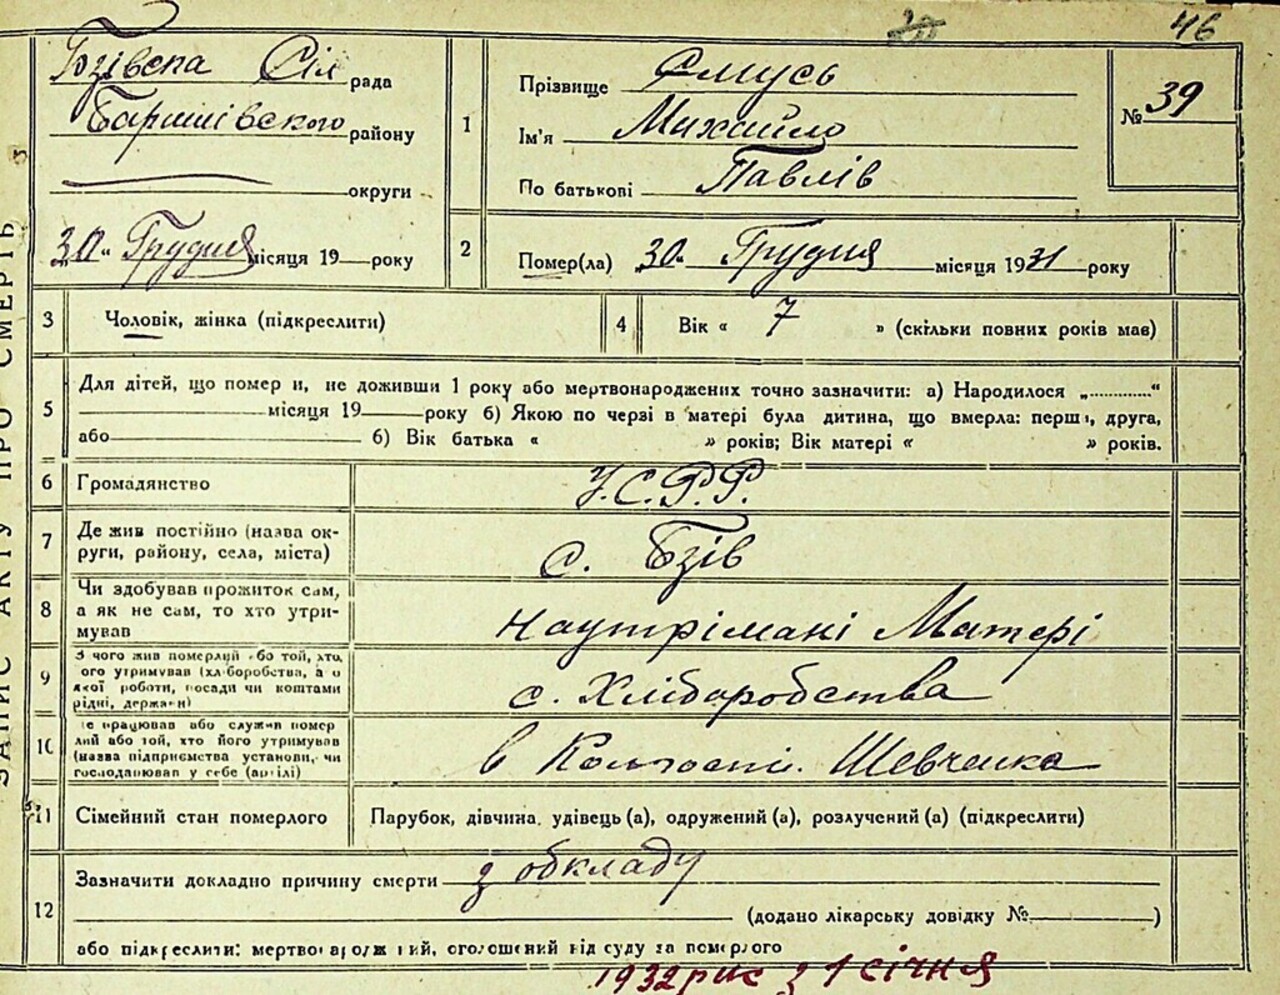 46
Бзівська Сіл рада
Баришівського району
округи
30 Грудня місяця 19 року
1
Прізвище Смусь
Ім'я Михайло
По батькові Павлів
№ 39
2
Помер(ла) „30" Грудня місяця 1931 року
3 Чоловік, жінка (підкреслити)
4 Вік « 7 » (скільки повних років мав)
5
Для дітей, що помер и, не доживши 1 року або мертвонароджених точно зазначити: а) Народилося „............"
місяця 19 року б) Якою по черзі в матері була дитина, що вмерла: перш., друга,
або б) Вік батька « » років; Вік матері « » років.
6 Громадянство У.С.Р.Р.
7
Де жив постійно (назва ок-
руги, району, села, міста)
с. Бзів
8
Чи здобував прожиток сам,
а як не сам, то хто утри-
мував
Наутрімані Матері
9
З чого жив померлий бо той, хто
ого утримував (хліборобства, а о
якої роботи, посади чи коштами
рідні, держави)
с. Хліборобства
10
е працював або служив помер
лий або той, хто його утримував
(назва підприємства установи, чи
господарював у себе (артілі)
в Шевченка
11 Сімейний стан померлого Парубок, дівчина, удівець (а), одружений (а), розлучений (а) (підкреслити)
12
Зазначити докладно причину смерти з обкладу
(додано лікарську довідку № )
або підкреслити: мертвонароджений, оголошений від суду за померлого
1932 рік з 1 січня
ЗАПИС АКТУ ПРО СМЕРТЬ